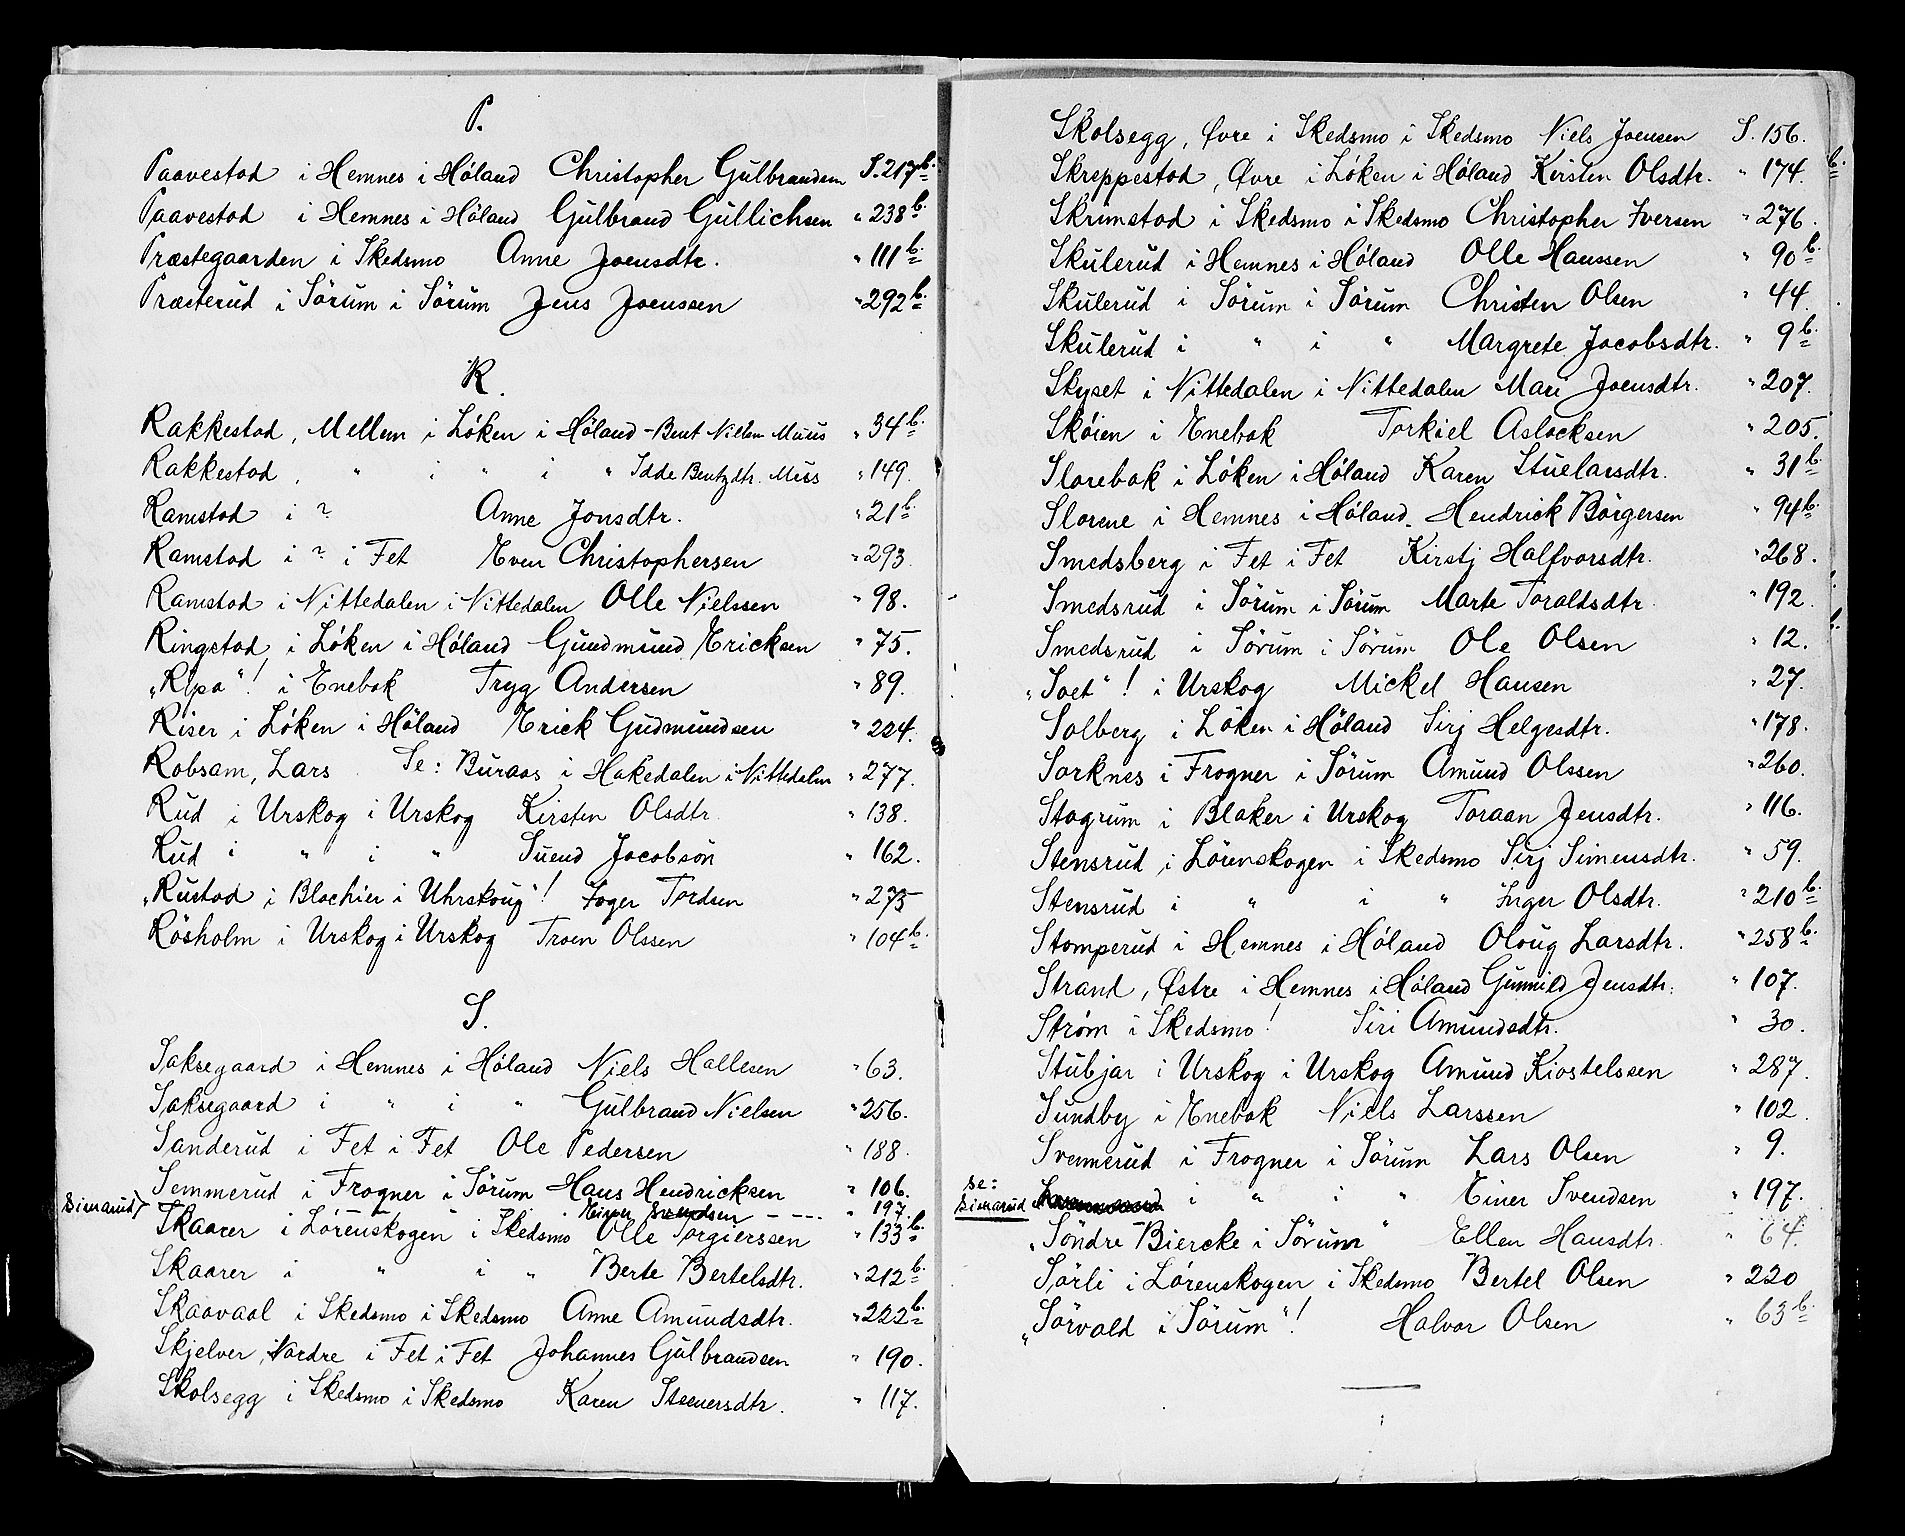 P.
Paavestad i Hemnes i Höland Christopher Gulbrandsen S. 217 b.
Paavestad i Hemnes i Höland Gulbrand Gullichsen " 238 b.
Præstegaarden i Skedsmo Anne Joensdtr. " 111 b.
Præsterud i Sörum i Sörum Jens Joenssen " 292 b.
R.
Rakkestad, Mellem i Löken i Höland - Bent Nilsen Muus " 34 b.
Rakkestad, " i " i " Idde Bentzdtr. Muss " 149.
Ramstad i ? Anne Jonsdtr. " 21 b.
Ramstad i ? i Fet Even Christophersen " 293.
Ramstad i Nittedalen i Nittedalen Olle Nielssen " 98.
Ringstad i Löken i Höland Gundmund Ericksen " 75.
"Ripa"! i Enebak Tryg Andersen " 89.
Riser i Löken i Höland Erick Gudmundsen " 224.
Robsam, Lars Se: Buraas i Hakedalen i Nittedalen " 277.
Rud i Urskog i Urskog Kirsten Olsdtr. " 138.
Rud i " i " Suend Jacobsön " 162.
"Rustad i Blachier i Uhrskoug"! Tordsen " 275
Rösholm i Urskog i Urskog Troen Olssen " 104 b.
S.
Saksegaard i Hemnes i Höland Niels Hallesen " 63.
Saksegaard i " i " Gulbrand Nielsen " 256.
Sanderud i Fet i Fet Ole Pedersen " 188.
Semmerud i Frogner i Sörum Hans Hendricksen " 106.
Simarud) - - Einer Svendsen - - - " 197.
Skaarer i Lörenskogen i Skedsmo Olle Torgierssen " 133 b.
Skaarer i " i " Berte Bertelsdtr. " 212 b.
Skaavaal i Skedsmo i Skedsmo Anne Amundsdtr. " 222 b.
Skjelver, Nordre i Fet i Fet Johannes Gulbrandsen " 190.
Skolsegg i Skedsmo i Skedsmo Karen Steenersdtr. " 117.
Skolsegg, Øvre i Skedsmo i Skedsmo Niels Joensen S. 156.
Skreppestad, Øvre i Löken i Höland Kirsten Olsdtr. " 174. b.
Skrimstad i Skedsmo i Skedsmo Christopher Iversen " 276.
Skulerud i Hemnes i Höland Olle Hanssen " 90 b.
Skulerud i Sörum i Sörum Christen Olsen " 44.
Skulerud i " i " Margrete Jacobsdtr. " 9 b.
Skyset i Nittedalen i Nittedalen Mari Joensdtr. " 207.
Sköien i Enebak Torkiel Aslacksen " 205.
Slorebak i Löken i Höland Karen Stuelarsdtr. " 31 b.
Slorene i Hemnes i Höland. Hendrick Börgersen " 94 b.
Smedsberg i Fet i Fet Kirstj Halfvorsdtr. " 268.
Smedsrud i Sörum i Sörum Marte Toraldsdtr. " 192.
Smedsrud i Sörum i Sörum Ole Olsen " 12.
"Soet"! i Urskog Mickel Hansen " 27.
Solberg i Löken i Höland Sirj Helgesdtr. " 178.
Sorknes i Frogner i Sörum Amund Olssen " 260.
Stagrum i Blaker i Urskog Toraan Jensdtr. " 116.
Stensrud i Lörenskogen i Skedsmo Sirj Simensdtr. " 59.
Stensrud i " i " Inger Olsdtr. " 210 b.
Stomperud i Hemnes i Höland Oloug Larsdtr. " 258 b.
Strand, Østre i Hemnes i Höland Gunnild Jensdtr. " 107.
Ström i Skedsmo! Siri Amundsdtr. " 30.
Stubjar i Urskog i Urskog Amund Kiostelssen " 287.
Sundby i Enebak Niels Larssen " 102.
Svennerud i Frogner i Sörum Lars Olsen " 9.
se: Simarud i " i " Einer Svendsen " 197.
"Söndre Biercke i Sörum" Ellen Hansdtr. " 64.
Sörli i Lörenskogen i Skedsmo Bertel Olsen " 220
"Sörvald i Sörum"! Halvor Olsen " 63 b.